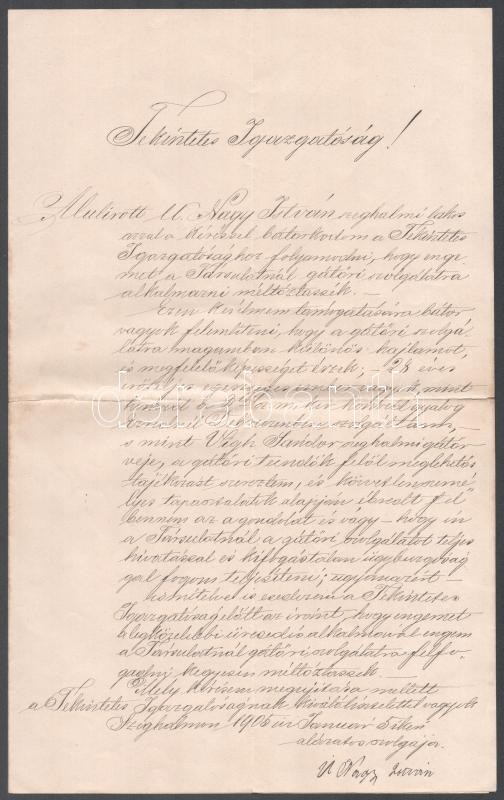 Tekintetes Igazgatóság!
Alulirott U. Nagy István szeghalmi lakos
azzal a kéréssel bátorkodom a Tekintetes
Igazgatósághoz folyamodni, hogy enge-
met a Társulatnál gátőri szolgálatra
alkalmazni méltóztassék. —
Ezen kérelmem támogatására bátor
vagyok felemliteni, hogy a gátőri szolgá-
latra magamban különös hajlamot,
és megfelelő képességet érzek; 28 éves
erős és egészséges ember vagyok, mint
gyalog
ezrednél szolgáltam,
s mint Végh Sándor szeghalmi gátőr
veje, a gátőri teendők felől meglehetős
tájékozást szereztem, és közvetlen szemé-
lyes tapasztalatok alapján ébredt fel
bennem az a gondolat és vágy – hogy én
a Társulatnál a gátőri szolgálatot teljes
hivatással és kifogástalan ügybuzgóság
gal fogom teljesiteni; ugyanazért —
ismételve is esedezem a Tekintetes
Igazgatóság előtt az iránt, hogy engemet
a legközelebbi üresedés alkalmával engem
a Társulatnál gátőri szolgálatra felfo-
gadni kegyesen méltóztassék. —
Mély kérésem megujitása mellett
a Tekintetes Igazgatóságnak kiváló tisztelettel vagyok
Szeghalmon 1906 év Januari 5-kén
alázatos szolgája.
U Nagy István
darabanth